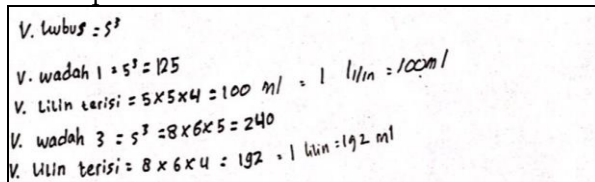 V. kubus = s³
V. wadah 1 = 5³ = 125
V. Lilin terisi = 5x5x4 = 100 ml = 1 lilin = 100ml
V. wadah 3 = s³ = 8x6x5 = 240
V. Lilin terisi = 8 x 6 x 4 = 192 = 1 lilin = 192 ml